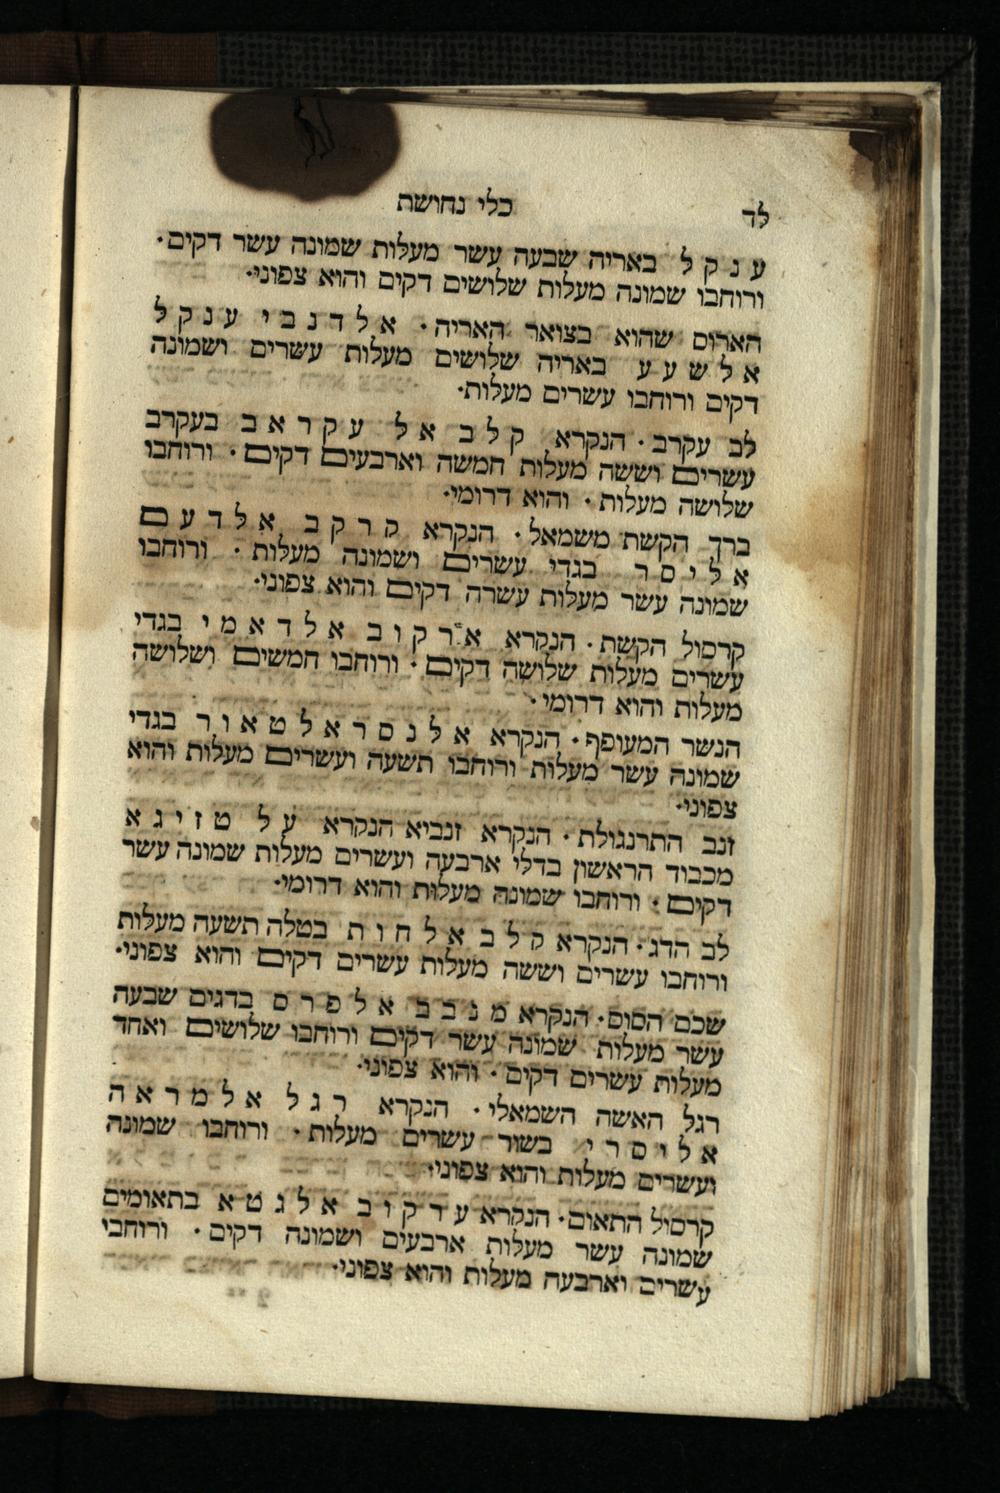 לד
כלי נחושת
ענקל באריה שבעה עשר מעלות שמונה עשר דקים·
ורוחבו שמונה מעלות שלושים דקים והוא צפוני·
הארוס שהוא בצואר האריה· אלדנבי ענקל
אלשעע באריה שלושים מעלות עשרים ושמונה
דקים ורוחבו עשרים מעלות·
לב עקרב· הנקרא קלב אל עקראב בעקרב
עשרים וששה מעלות חמשה וארבעים דקים· ורוחבו
שלושה מעלות· והוא דרומי·
ברך הקשת משמאל· הנקרא קרקב אלדעם
אליסר בגדי עשרים ושמונה מעלות· ורוחבו
שמונה עשר מעלות עשרה דקים והוא צפוני·
קרסול הקשת· הנקרא ארקוב אלדאמי בגדי
עשרים מעלות שלושה דקים· ורוחבו חמשים ושלושה
מעלות והוא דרומי·
הנשר המעופף· הנקרא אלנסראלטאור בגדי
שמונה עשר מעלות ורוחבו תשעה ועשרים מעלות והוא
צפוני·
זנב התרנגולת· הנקרא זנביא הנקרא על טזיגא
מכבוד הראשון בדלי ארבעה ועשרים מעלות שמונה עשר
דקים· ורוחבו שמונה מעלות והוא דרומי·
לב הדג· הנקרא קלב אלחות בטלה תשעה מעלות
ורוחבו עשרים וששה מעלות עשרים דקים והוא צפוני·
שכם הסוס· הנקרא מנכב אלפרס בדגים שבעה
עשר מעלות שמונה עשר דקים ורוחבו שלושים ואחד
מעלות עשרים דקים· והוא צפוני·
רגל האשה השמאלי· הנקרא רגל אלמראה
אליסרי בשור עשרים מעלות· ורוחבו שמונה
ועשרים מעלות והוא צפוני·
קרסול התאום· הנקרא ערקוב אלגטא בתאומים
שמונה עשר מעלות ארבעים ושמונה דקים· ורוחבי
עשרים וארבעה מעלות והוא צפוני·